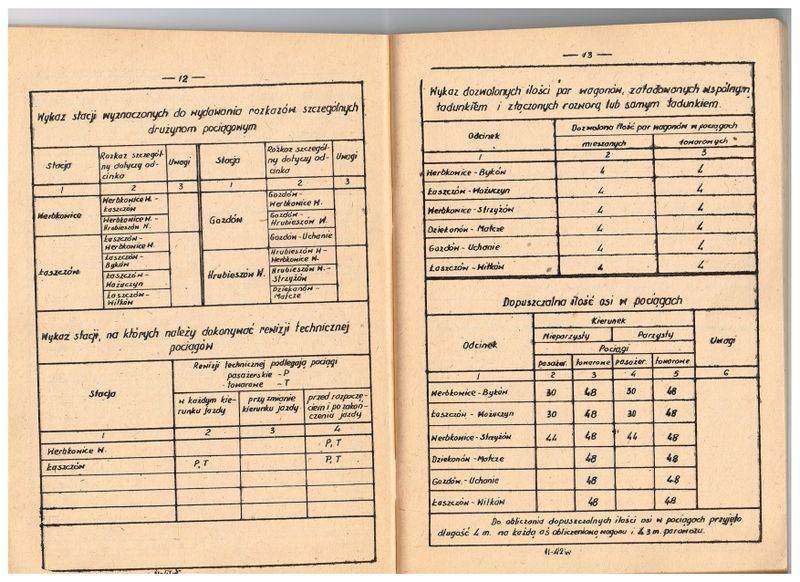 — 12 —
Wykaz stacji wyznaczonych do wydawania rozkazów szczególnych
drużynom pociągowym
Stacja Rozkaz szczegól-ny dotyczy od-cinka Uwagi Stacja Rozkaz szczegól-ny dotyczy od-cinka Uwagi
1 2 3 1 2 3
Werbkowice
Werbkowice W. - Łaszczów
Werbkowice W. - Hrubieszów W.
Łaszczów
Łaszczów - Werbkowice W.
Łaszczów - Byków
Łaszczów - Wożuczyn
Łaszczów - Witków
Gozdów
Gozdów - Werbkowice W.
Gozdów - Hrubieszów W.
Gozdów - Uchanie
Hrubieszów W.
Hrubieszów W - Werbkowice W.
Hrubieszów W. - Strzyżów
Dziekanów - Matcze
Wykaz stacji, na których należy dokonywać rewizji technicznej
pociągów
Stacja
Rewizji technicznej podlegają pociągi
pasażerskie - P
towarowe - T
w każdym kie-runku jazdy
przy zmianie kierunku jazdy
przed rozpoczę-ciem i po zakoń-czeniu jazdy
1 2 3 4
Werbkowice W. P, T
Łaszczów P, T P, T
— 13 —
Wykaz dozwolonych ilości par wagonów, załadowanych wspólnym
ładunkiem i złączonych rozworą lub samym ładunkiem.
Odcinek Dozwolona ilość par wagonów w pociągach
mieszanych towarowych
1 2 3
Werbkowice - Byków 4 4
Łaszczów - Wożuczyn 4 4
Werbkowice - Strzyżów 4 4
Dziekonów - Matcze 4 4
Gozdów - Uchanie 4 4
Łaszczów - Witków 4 4
Dopuszczalna ilość osi w pociągach
Odcinek Kierunek Uwagi
Nieparzysty Parzysty
Pociągi
pasażer. towarowe pasażer. towarowe
1 2 3 4 5 6
Werbkowice - Byków 30 48 30 48
Łaszczów - Wożuczyn 30 48 30 48
Werbkowice - Strzyżów 44 48 44 48
Dziekonów - Matcze 48 48
Gozdów - Uchanie 48 48
Łaszczów - Witków 48 48
Do obliczania dopuszczalnych ilości osi w pociągach przyjęto
długość 4 m. na każdą oś obliczeniową wagonu i 3 m. parowozu.